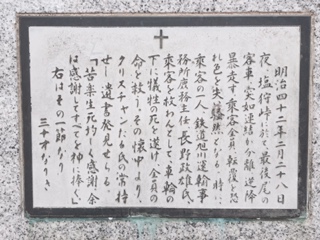 明治四十二年二月二十八日
夜、塩狩峠に於て、最後尾の
客車、突如連結が分離、逆降
暴走す。乗客全員、転覆を恐
れ色を失い騒然となる。時に、
乗客の一人、鉄道旭川運輸事
務所庶務主任、長野政雄氏、
乗客を救わんとして、車輪の
下に犠牲の死を遂げ、全員の
命を救う。その懐中より、
クリスチャンたる氏の常持
せし遺書発見せらる。
「苦楽生死均しく感謝。余
は感謝してすべてを神に捧ぐ」
右はその一節なり
三十才なりき